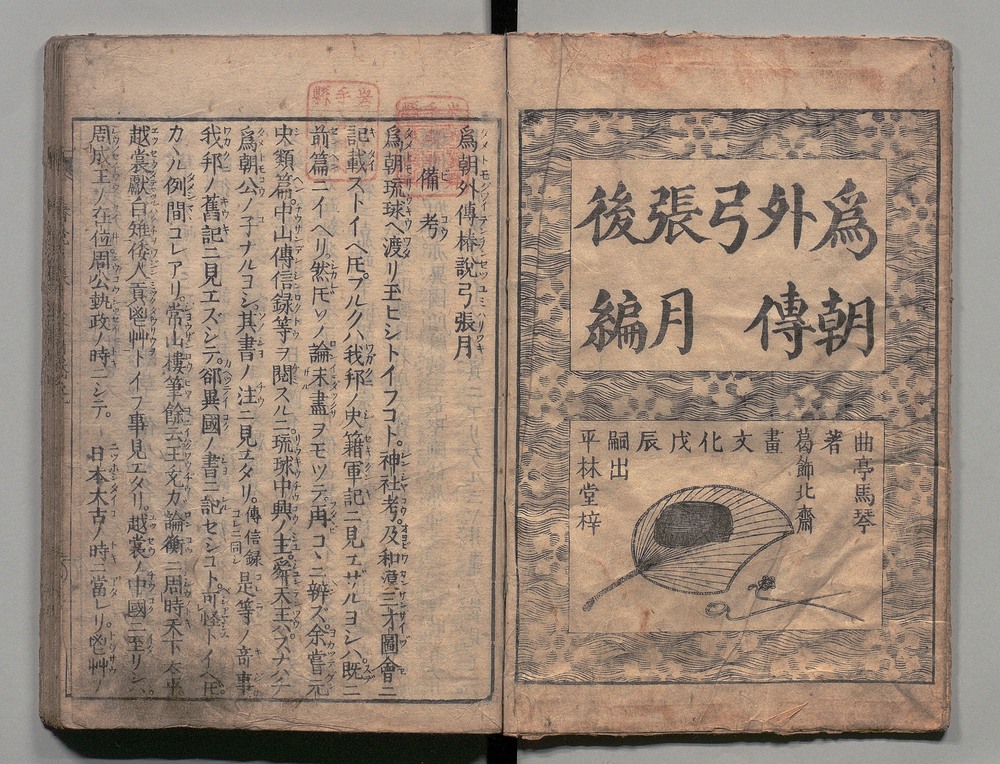 爲朝
外傳
弓
張月
後編
曲亭馬琴
著
葛飾北齋
畫
文化戊辰
嗣出
平林堂梓
爲朝外傳椿説弓張月
備考
爲朝琉球ヘ渡リ玉ヒシトイフコト。神社考。及和漢三才圖會ニ
記載ストイヘ𪜈。フルクハ我邦ノ史籍軍記ニ見エザルヨシハ既ニ
前篇ニイヘリ然𪜈ソノ論未盡ヲモツテ。再コヽニ辨ズ。余嘗元
史類篇。中山傳信録等ヲ閲スルニ琉球中興ノ主。舜天王ハスナハチ
爲朝公ノ子ナルヨシ。其書ノ注ニ見エタリ。傳信録コレニ同シ是等ノ奇事
我邦ノ舊記ニ見エズシテ。郤異國ノ書ニ記セシコト。可怪トイヘ𪜈
カヽル例間コレアリ。常山樓筆餘云王充カ論衡ニ周時天下太平
越裳獻白雉倭人貢鬯艸トイフ事見エタリ。越裳ノ中國ニ至リシハ
周成王ノ在位周公執政ノ時ニシテ。日本太古ノ時ニ當レリ鬯艸ノ